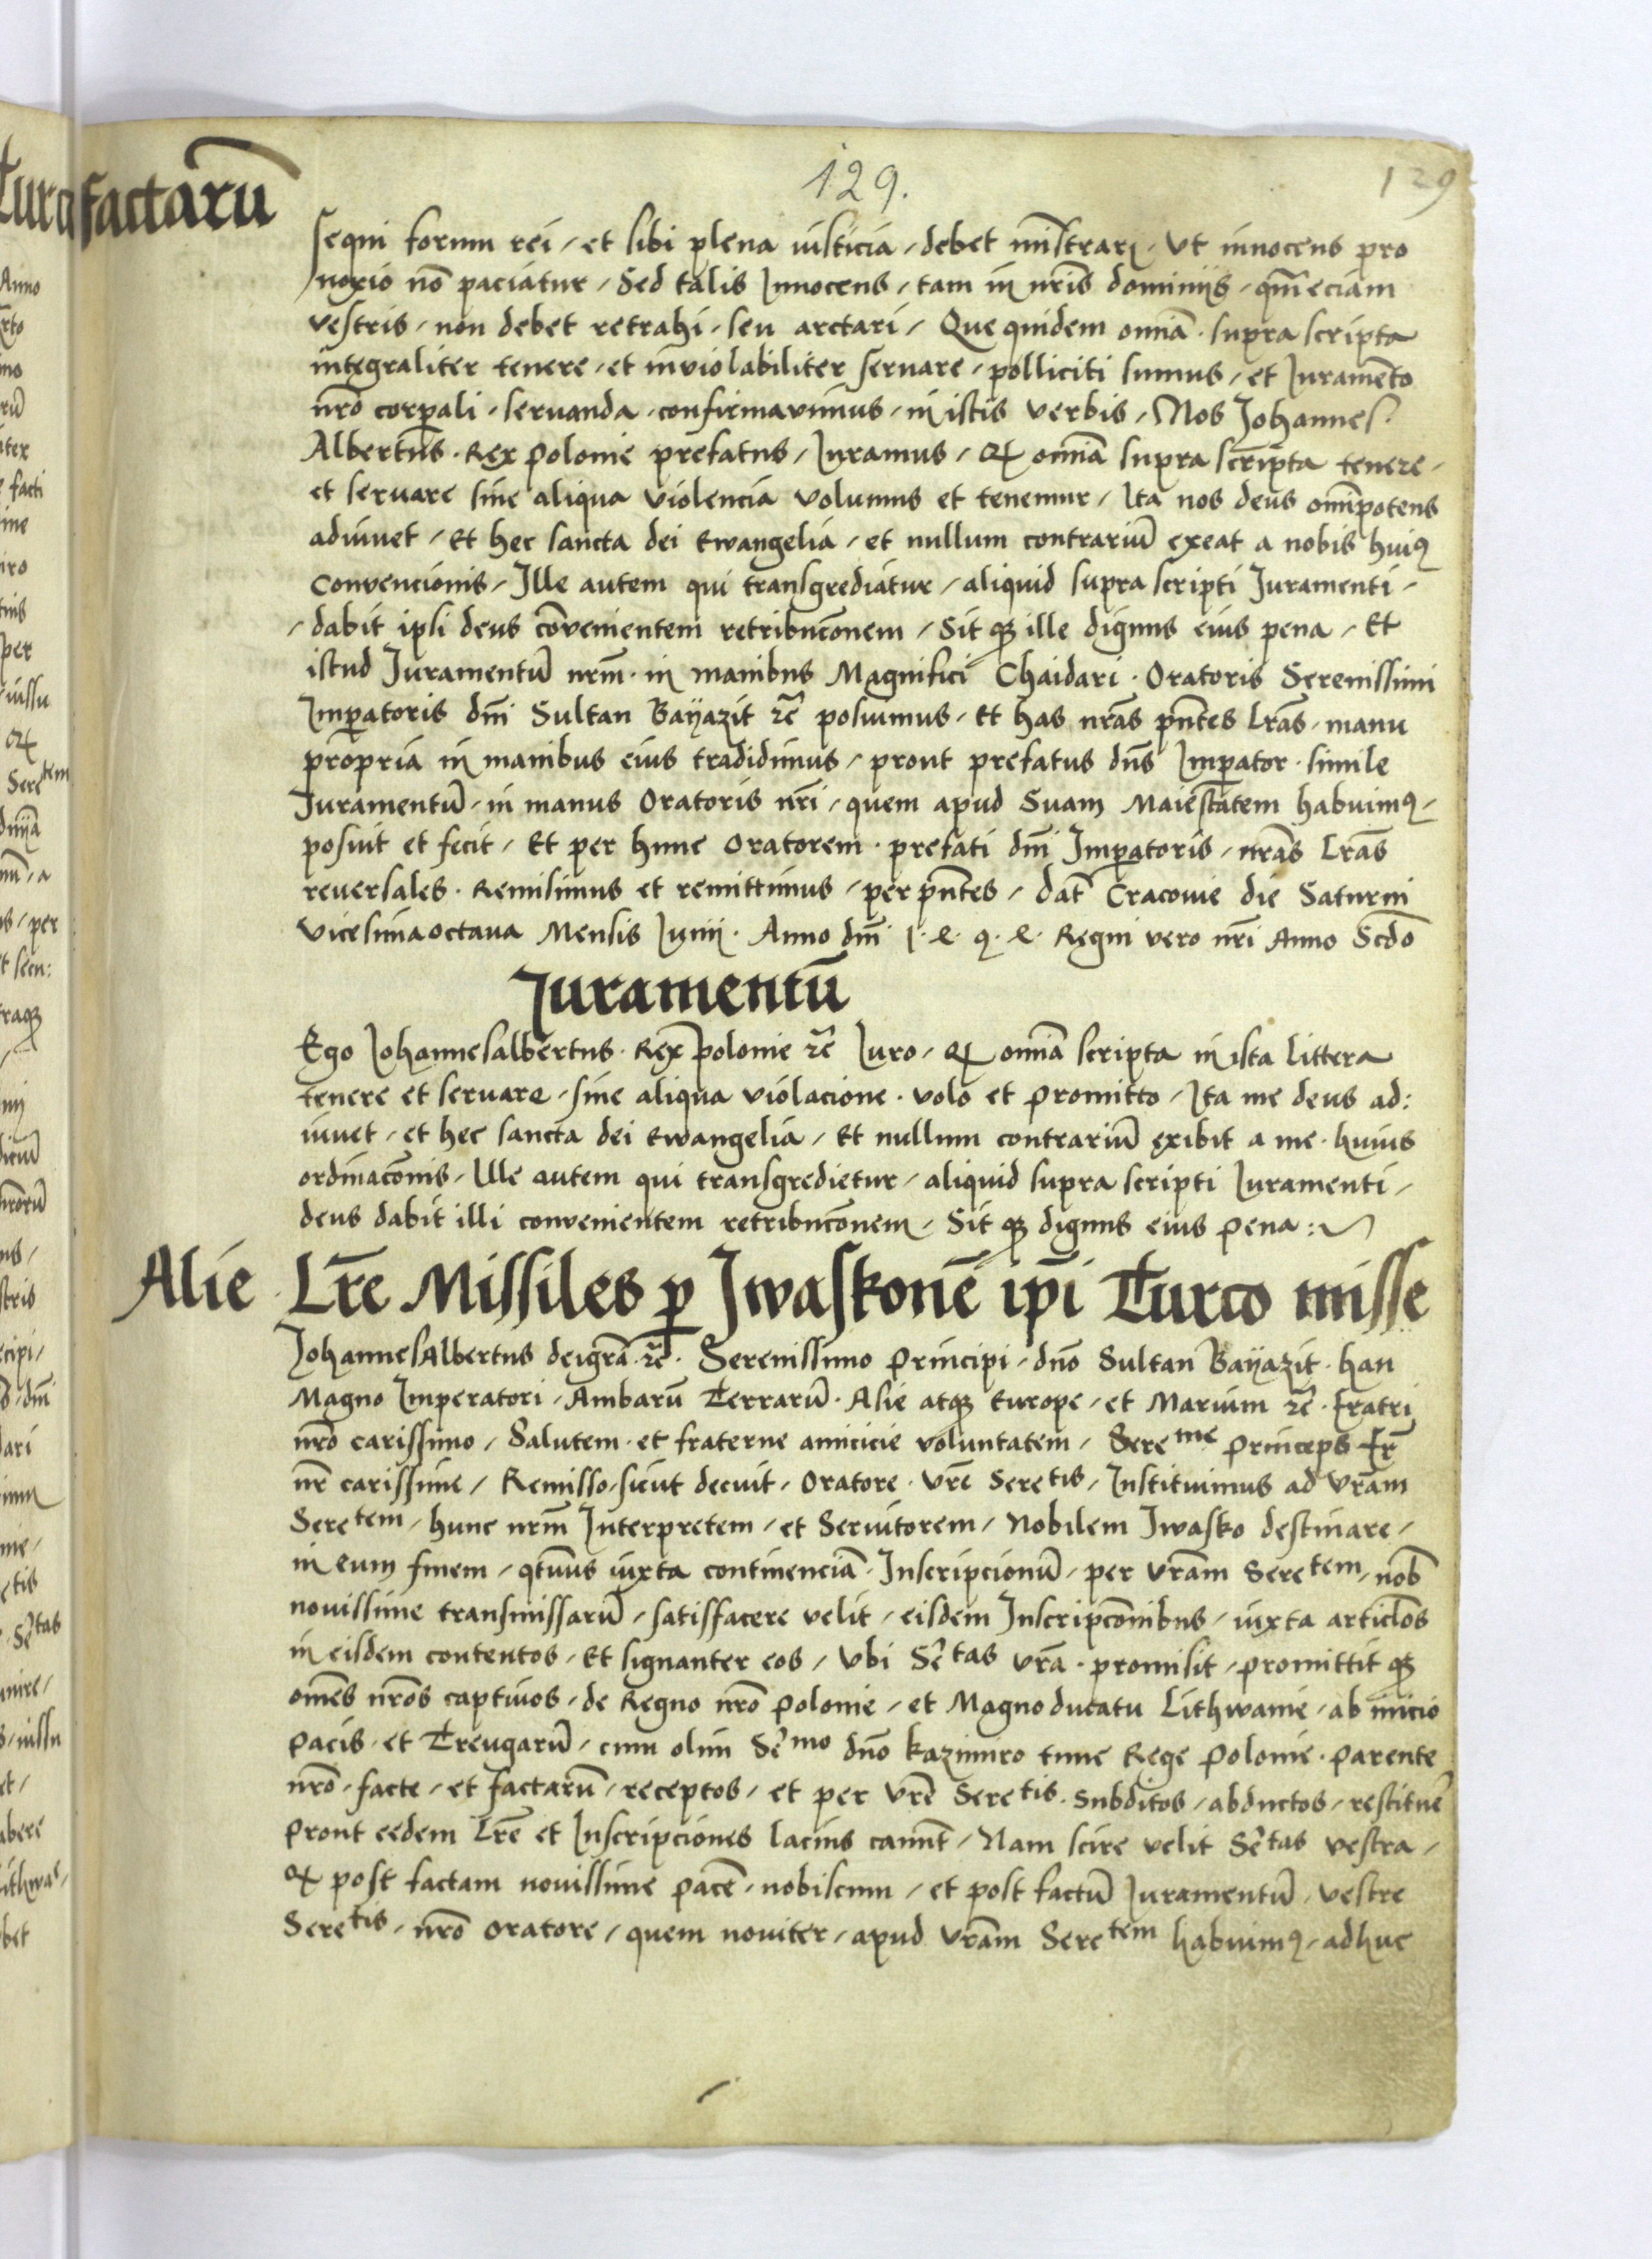 129.
129
factarū
sequi forum rei / et sibi plena iusticia / debet mīstrari · Ut innocens pro
noxio nō paciatur / Sed talis Innocens / tam in nr̄is dominiis / qm̄ eciam
vestris / non debet retrahi / seu arctari / Que quidem om̄ia · supra scripta
integraliter tenere / et inviolabiliter servare / polliciti sumus / et Juramēto
nr̄o corꝑali / servanda / confirmavimus / in istis verbis / Nos Johannes
Albertus · Rex Polonie prefatus / Juramus / ꝙ om̄ia supra scripta tenere /
et servare sine aliqua violencia volumus et tenemur / Ita nos deus om̄ipotens
adiuvet / Et hec sancta dei Ewangelia / et nullum contrariū exeat a nobis huiꝰ
Convencionis / Ille autem qui transgrediatur / aliquid supra scripti Juramenti /
/ dabit ipsi deus cōvenientem retribucōnem / Sit qꝫ ille dignus eius pena / Et
istud Juramentū nr̄m · in manibus Magnifici Chaidari · Oratoris Serenissimi
Imꝑatoris dn̄i Sultan Bayazit ⁊c̄ posuimus / Et has nr̄as pn̄tes Lr̄as / manu
propria in manibus eius tradidimus / prout prefatus dn̄s Imꝑator · simile
Juramentū / in manus Oratoris nr̄i / quem apud Suam Maiestatem habuimꝰ /
posuit et fecit / Et per hunc Oratorem · prefati dn̄i Imꝑatoris / nr̄as Lr̄as
reversales · Remisimus et remittimus / per pn̄tes / dat̄ Cracovie die Saturni
Vicesimaoctava Mensis Junii · Anno dn̄i 1·4·9·4· Regni vero nr̄i Anno Scd̄o
Juramentū
Ego Johannesalbertus · Rex Polonie ⁊c̄ Juro / ꝙ om̄ia scripta in ista littera
tenere et servare / sine aliqua violacione · volo et promitto / Ita me deus ad:
iuvet / et hec sancta dei Ewangelia / Et nullum contrariū exibit a me · huius
ordinacōnis / Ille autem qui transgredietur / aliquid supra scripti Juramenti /
deus dabit illi convenientem retribucōnem / Sit qꝫ dignus eius pena :~
Alie Lr̄e Missiles ꝑ Jwaskonē ip̄i Turco misse
JohannesAlbertus deigr̄a ⁊c̄ · Serenissimo Principi / dn̄o Sultan Bayazit · han
Magno Imperatori / Ambarū Terrarū · Asie atqꝫ Europe / et Marium ⁊c̄ · Fratri
nr̄o carissimo / Salutem · et fraterne amicicie voluntatem / Sereme Princeps Fr̄
nr̄ carissime / Remisso / sicut decuit / Oratore · Vr̄e Seretis / Instituimus ad Vr̄am
Seretem / hunc nr̄m Interpretem / et Servitorem / Nobilem Jwasko destinare /
in eum finem / qt̄nus iuxta continenciā · Inscripcionū / per Vr̄am Seretem / nob̄
novissime transmissarū / satisfacere velit / eisdem Inscripcōnibus / iuxta articl̄os
in eisdem contentos / Et signanter eos / Ubi Sērtas Vr̄a · promisit / promittit qꝫ
om̄es nr̄os captivos / de Regno nr̄o Polonie / et Magno ducatu Lithwanie / ab inicio
Pacis · et Treugarū / cum olim Sērmo dn̄o Kazimiro tunc Rege Polonie · Parente
nr̄o · facte / et factarū / receptos / et per Vr̄e Seretis · Subditos / abductos / restituē
Prout eedem Lr̄e et Inscripciones lacius canunt / Nam scire velit Sērtas vestra /
ꝙ post factam novissime pacē · nobiscum / et post factū Juramentū · vestre
Seretis / nr̄o oratore / quem noviter / apud Vr̄am Seretem habuimꝰ / adhuc